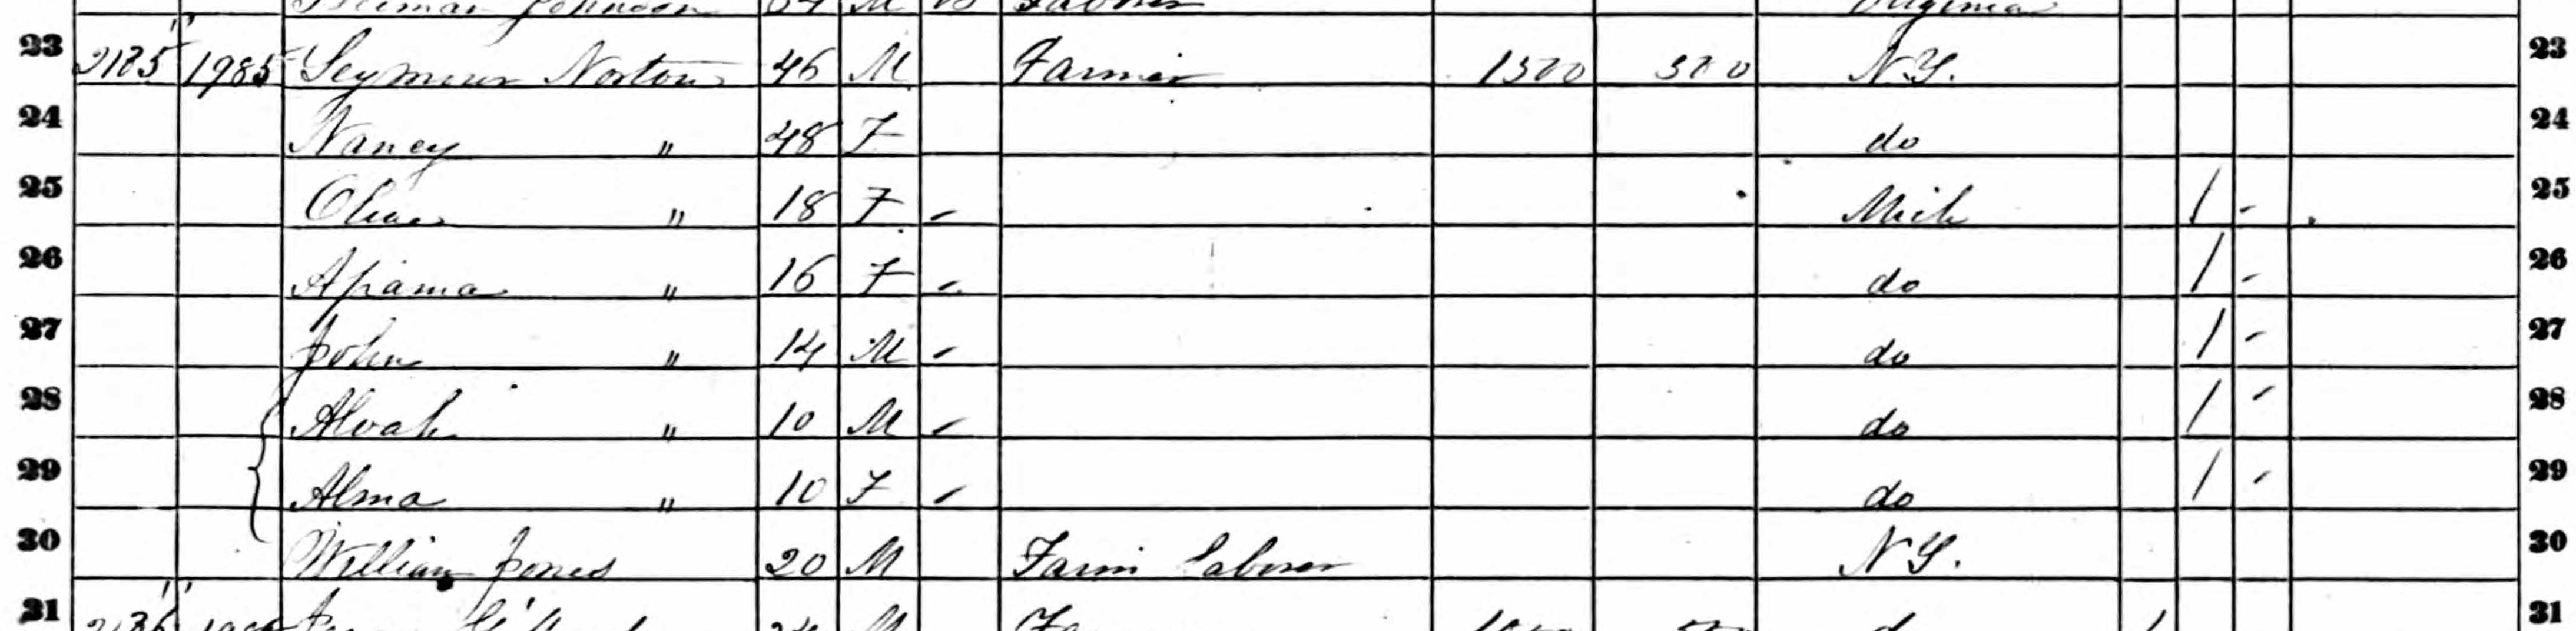 Johnson M B Laborer Virginia
23 2185 1985 Seymour Norton 46 M Farmer 1500 300 N.Y. 23
24 Nancy " 48 F do 24
25 Olive " 18 F Mich 1 25
26 Apama " 16 F do 1 26
27 John " 14 M do 1 27
28 Alvah " 10 M do 1 28
29 Alma " 10 F do 1 29
30 William Jones 20 M Farm Laborer N.Y. 30
31 M 31